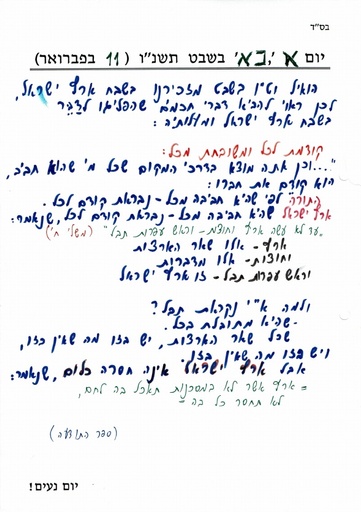 בס"ד
יום א', כא' בשבט תשנ"ו (11 בפברואר)
הואיל וט"ו בשבט מזכירנו בשבח ארץ ישראל,
לכן ראוי להביא דברי חכמים שהפליאו לדבר
בשבח ארץ ישראל ומעלותיה:
קודמת לכל ומשובחת מכל:
"...וכן אתה מוצא בדרכי המקום שכל מי שהוא חביב,
הוא קודם את חברו:
התורה לפי שהיא חביבה מכל - נבראת קודם לכל.
ארץ ישראל שהיא חביבה מכל - נבראת קודם לכל, שנאמר:
"עד לא עשה ארץ וחוצות - וראש עפרות תבל" (משלי ח')
ארץ - אלו שאר הארצות
וחוצות - אלו מדברות
וראש עפרות תבל - זו ארץ ישראל
ולמה א"י נקראת תבל?
- שהיא מתובלת בכל.
שכל שאר הארצות, יש בזו מה שאין בזו,
ויש בזו מה שאין בזו.
אבל ארץ ישראל אינה חסרה כלום, שנאמר:
"ארץ אשר לא במסכנות תאכל בה לחם,
לא תחסר כל בה"
(ספר התודעה)
יום נעים!